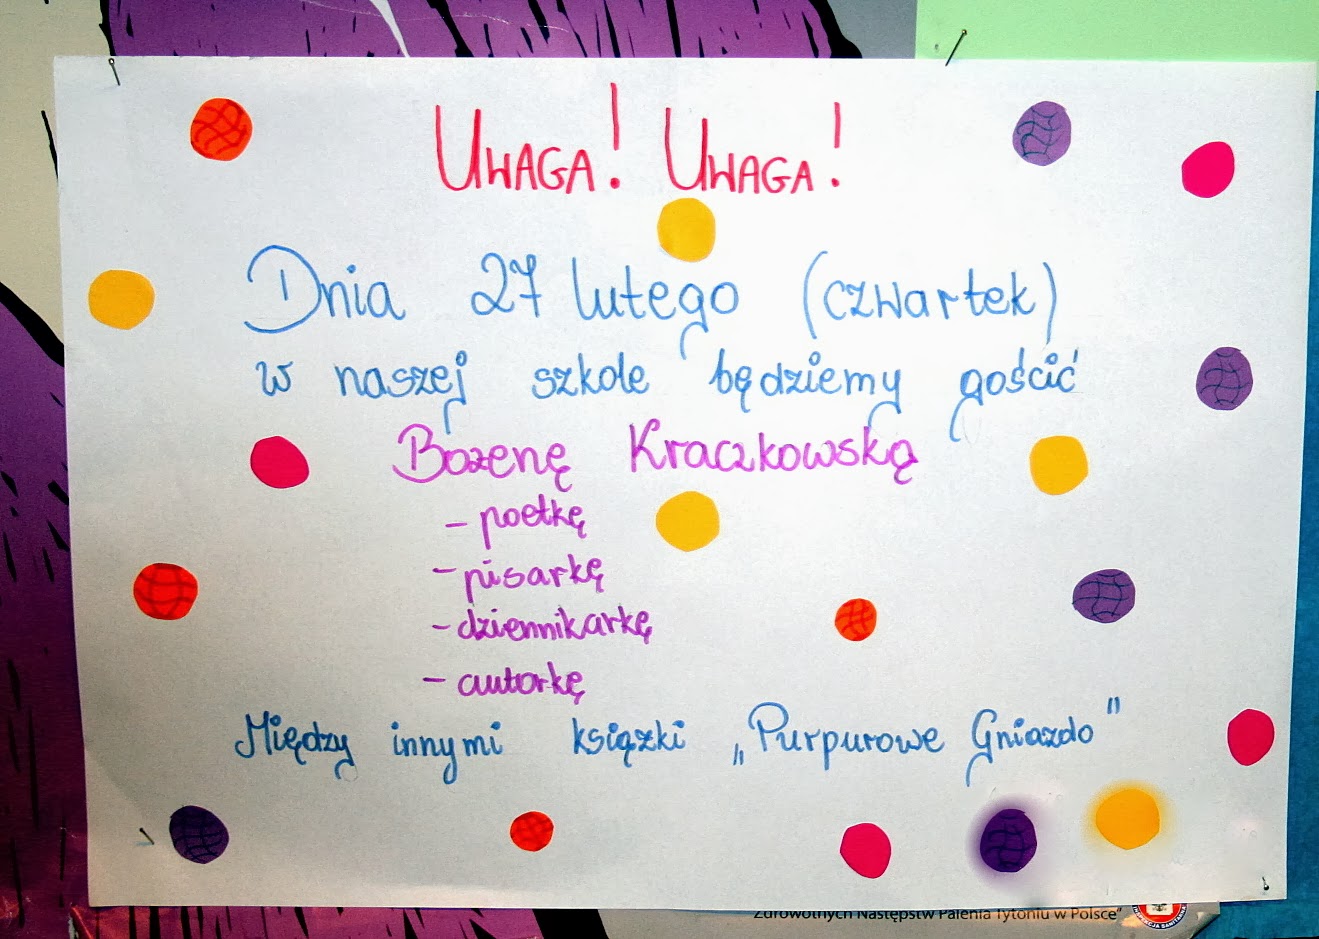 UWAGA! UWAGA!
Dnia 27 lutego (czwartek)
w naszej szkole będziemy gościć
Bożenę Kraczkowską
- poetkę
- pisarkę
- dziennikarkę
- autorkę
Między innymi książki „Purpurowe Gniazdo”
Zdrowotnych Następstw Palenia Tytoniu w Polsce”